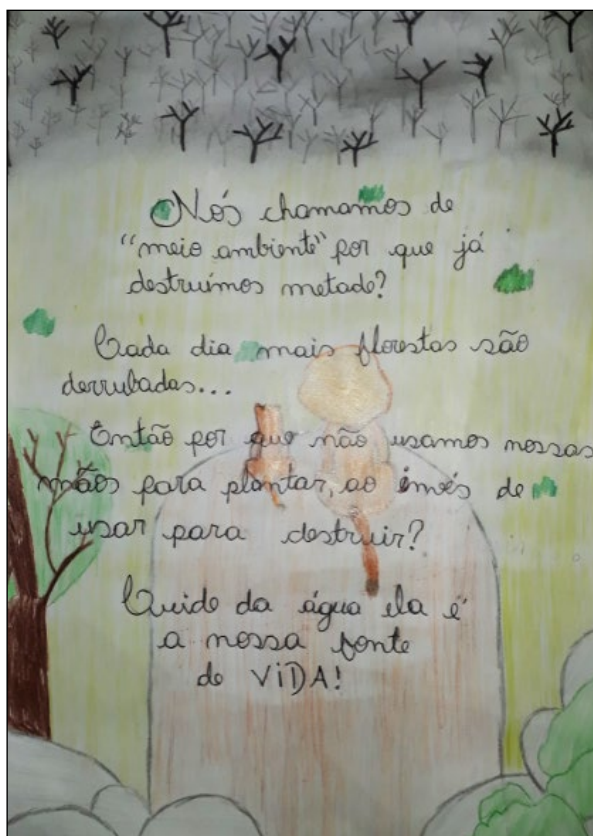 Nós chamamos de
"meio ambiente" por que já
destruímos metade?
Cada dia mais florestas são
derrubadas...
Então por que não usamos nossas
mãos para plantar, ao invés de
usar para destruir?
Cuide da água ela é
a nossa fonte
de ViDA!